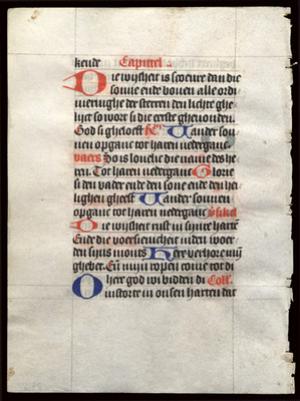 kende Capittel
Die wijsheit is scoenre dan die
sonne ende bouen alle ordi
nieringhe der sterren den lichte ghe
lijct so wort si die eerste gheuonden.
God si gheloeft Uander son
nen opganc tot haren nederganc
vaers So is louelic die name des he
ren. Tot haren nederganc Glorie
si den vader ende den sone ende den hei
lighen gheest Uander sonnen
opganc tot haren nederganc
Die wijsheit rust in sijnre harten
Ende die voersienicheit inden woer
den sijns monts Here verhore mijn
ghebet. Eñ mijn ropen come tot di
O here god wi bidden di Coll.
instorte in onsen harten dat